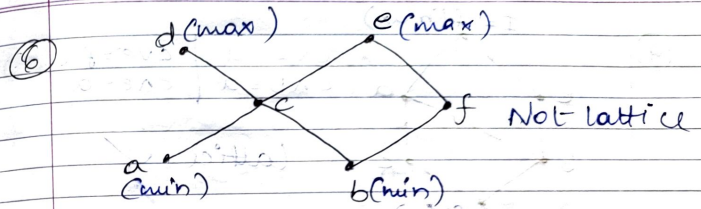 6
d (max) e (max)
c f Not lattice
a
(min) b (min)